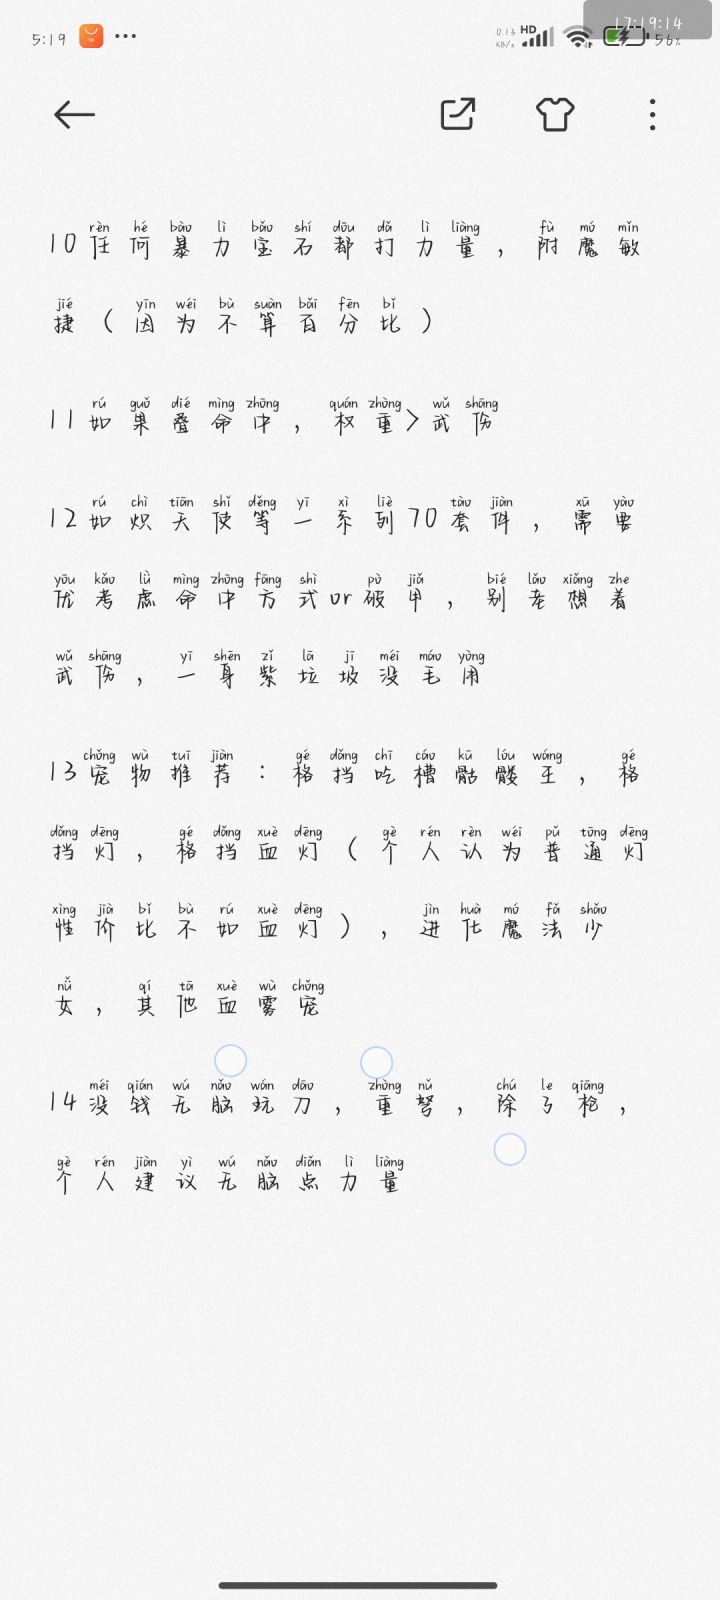 5:19
0.13 KB/s HD 17:19:14 56%
rèn hé bào lì bǎo shí dōu dǎ lì liàng fù mó mǐn
10任何暴力宝石都打力量，附魔敏
jié yīn wéi bù suàn bǎi fēn bǐ
捷（因为不算百分比）
rú guǒ dié mìng zhōng quán zhòng wǔ shāng
11如果叠命中，权重>武伤
rú chì tiān shǐ děng yī xì liè tào jiàn xū yào
12如炽天使等一系列70套件，需要
yōu kǎo lǜ mìng zhōng fāng shì pò jiǎ bié lǎo xiǎng zhe
优考虑命中方式or破甲，别老想着
wǔ shāng yī shēn zǐ lā jī méi máo yòng
武伤，一身紫垃圾没毛用
chǒng wù tuī jiàn gé dǎng chī cáo kū lóu wáng gé
13宠物推荐：格挡吃槽骷髅王，格
dǎng dēng gé dǎng xuè dēng gè rén rèn wéi pǔ tōng dēng
挡灯，格挡血灯（个人认为普通灯
xìng jià bǐ bù rú xuè dēng jìn huà mó fǎ shǎo
性价比不如血灯），进化魔法少
nǚ qí tā xuè wù chǒng
女，其他血雾宠
méi qián wú nǎo wán dāo zhòng nǔ chú le qiāng
14没钱无脑玩刀，重弩，除了枪，
gè rén jiàn yì wú nǎo diǎn lì liàng
个人建议无脑点力量